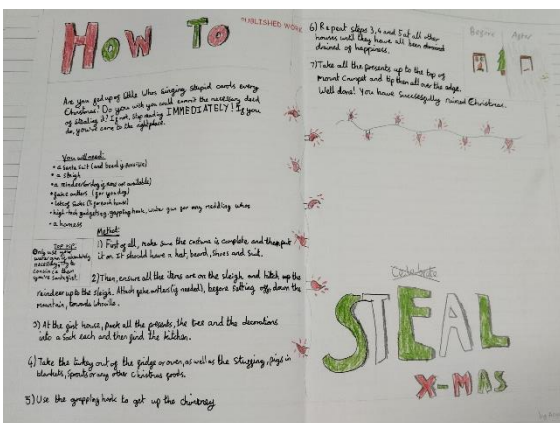 HOW TO
PUBLISHED WORK
Are you fed up of little Whos singing stupid carols every
Christmas? Do you wish you could commit the necessary deed
of stealing it? If not, stop reading IMMEDIATELY! If you
do, you've come to the right place.
You will need:
• a Santa suit (and beard if possible)
• a sleigh
• a reindeer (or dog is none are available)
• fake antlers (for your dog)
• lots of sacks (3 for each house)
• high-tech gadgets eg. grappling hook, water gun for any meddling whos
• a harness
TOP TIP:
Only use your
water gun if absolutely
necessary; try to
convince them
you're santa first.
Method:
1) First of all, make sure the costume is complete, and then put
it on. It should have a hat, beard, shoes and suit.
2) Then, ensure all the items are on the sleigh and hitch up the
reindeer up to the sleigh. Attach fake antlers (if needed), before setting off, down the
mountain, towards Whoville.
3) At the first house, pack all the presents, the tree and the decorations
into a sack each and then find the kitchen.
4) Take the turkey out of the fridge or oven, as well as the stuffing, pigs in
blankets, sprouts or any other Christmas foods.
5) Use the grappling hook to get up the chimney
6) Repeat steps 3, 4 and 5 at all other
houses until they have all been drained
drained of happiness.
Before After
7) Take all the presents up to the top of
Mount Crumpet and tip them all over the edge.
Well done! You have successfully ruined Christmas.
STEAL
X-MAS